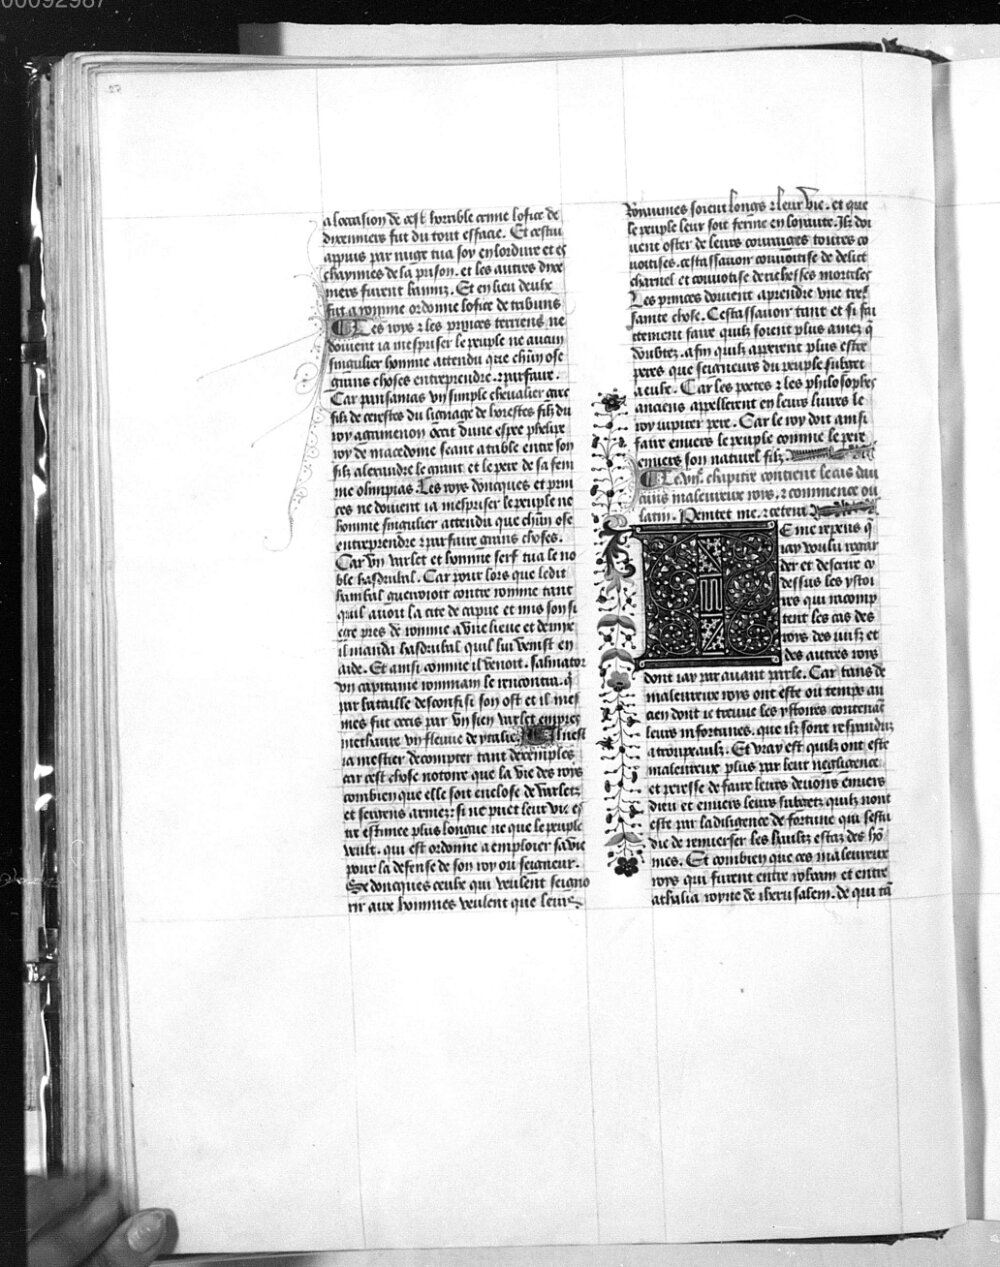 00092987
a loccasion de cest horrible crime lofice de
dixenniers fut du tout efface. Et cestui
appius par nuyt tua soy en lordure et es
chaynnes de la prison. et les autres dixe
niers furent banniz. Et en lieu deulx
fut a romme ordonne lofice de tribuns
Les roys ⁊ les princes terriens ne
doiuent ia mespriser le peuple ne aucun
singulier homme attendu que chũn ose
grans choses entreprendre. ⁊ parfaire.
Car pansanias vn simple cheualier grec
filz de cerestes du lignage de horestes filz du
roy agamenon occit dune espee phelipe
roy de macedoine seant a table entre son
filz alexandre le grant et le pere de sa fem
me olimpias. Les roys doncques et prin
ces ne doiuent ia mespriser le peuple ne
homme singulier attendu que chũn ose
entreprendre ⁊ parfaire grans choses.
Car vn varlet et homme serf tua le no
ble hasdrubal. Car pour lors que ledit
hanibal guerroioit contre romme tant
quil auoit la cite de capue et mis son si
ege pres de romme a vne lieue et demye
il manda hasdrubal quil lui venist en
aide. Et ainsi comme il venoit. salinator
vn capitaine rommain le rencontra. q̃
par bataille desconfist son ost et il mes
mes fut occis par vn sien varlet empres
methaure vn fleuue de ytalie. Il nest
ia mestier de compter tant dexemples
car cest chose notoire que la vie des roys
combien que elle soit enclose de varletz
et sergens armez: si ne puet leur vie es
tre estimee plus longue ne que le peuple
veult. qui est ordonne a emploier sa vie
pour la defense de son roy ou seigneur.
Se doncques ceulx qui veulent seigno
rir aux hommes veulent que leurs
Royaumes soient longs ⁊ leur vie. et que
le peuple leur soit ferme en loyaute. Ilz doi
uent oster de leurs couraiges toutes co
uoitises. cestassauoir conuoitise de delict
charnel et conuoitise de richesses morteles
Les princes doiuent aprendre vne tres
sainte chose. Cestassauoir tant et si fai
ctement faire quilz soient plus amez q̃
doubtez. afin quilz apperent plus estre
peres que seigneurs du peuple subget
a eulx. Car les poetes ⁊ les philosophes
anciens appellerent en leurs liures le
roy iupiter pere. Car le roy doit ainsi
faire enuers le peuple comme le pere
enuers son naturel filz
Le chapitre contient le cas dau
cuns maleureux roys. ⁊ commence ou
latin. Penitet me. ⁊ cetera
E me repens q̃
iay voulu regar
der et descrire cy
dessus les ystoi
res qui racomp
tent les cas des
roys des iuifz et
des autres roys
dont iay par auant parle. Car tans de
maleureux roys ont este ou temps an
cien dont ie treuue les ystoires contenãt
leurs infortunes. que ilz sont respanduz
a tronpeaulx. Et vray est quilz ont este
maleureux plus par leur negligence
et peresse de faire leurs deuoirs enuers
dieu et enuers leurs subgetz quilz nont
este par la diligence de fortune qui sestu
die de renuerser les haultz estaz des hõ
mes. Et combien que ces maleureux
roys qui furent entre roboam et entre
athalia royne de iherusalem. de qui iã